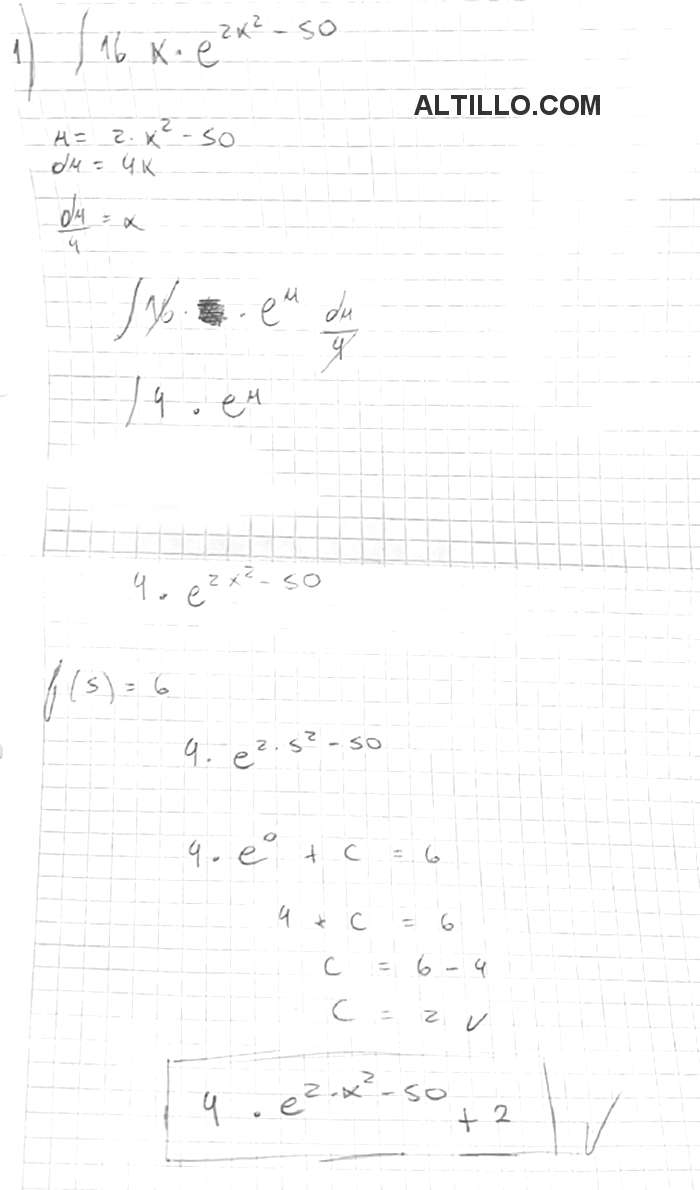 1) ∫ 16 x · e^(2x² - 50)
ALTILLO.COM
u = 2 · x² - 50
du = 4x
du/4 = x
∫ 16 · e^u du/4
∫ 4 · e^u
4 · e^(2x² - 50)
f(5) = 6
4 · e^(2 · 5² - 50)
4 · e^0 + C = 6
4 + C = 6
C = 6 - 4
C = 2 ✓
4 · e^(2 · x² - 50) + 2 ✓